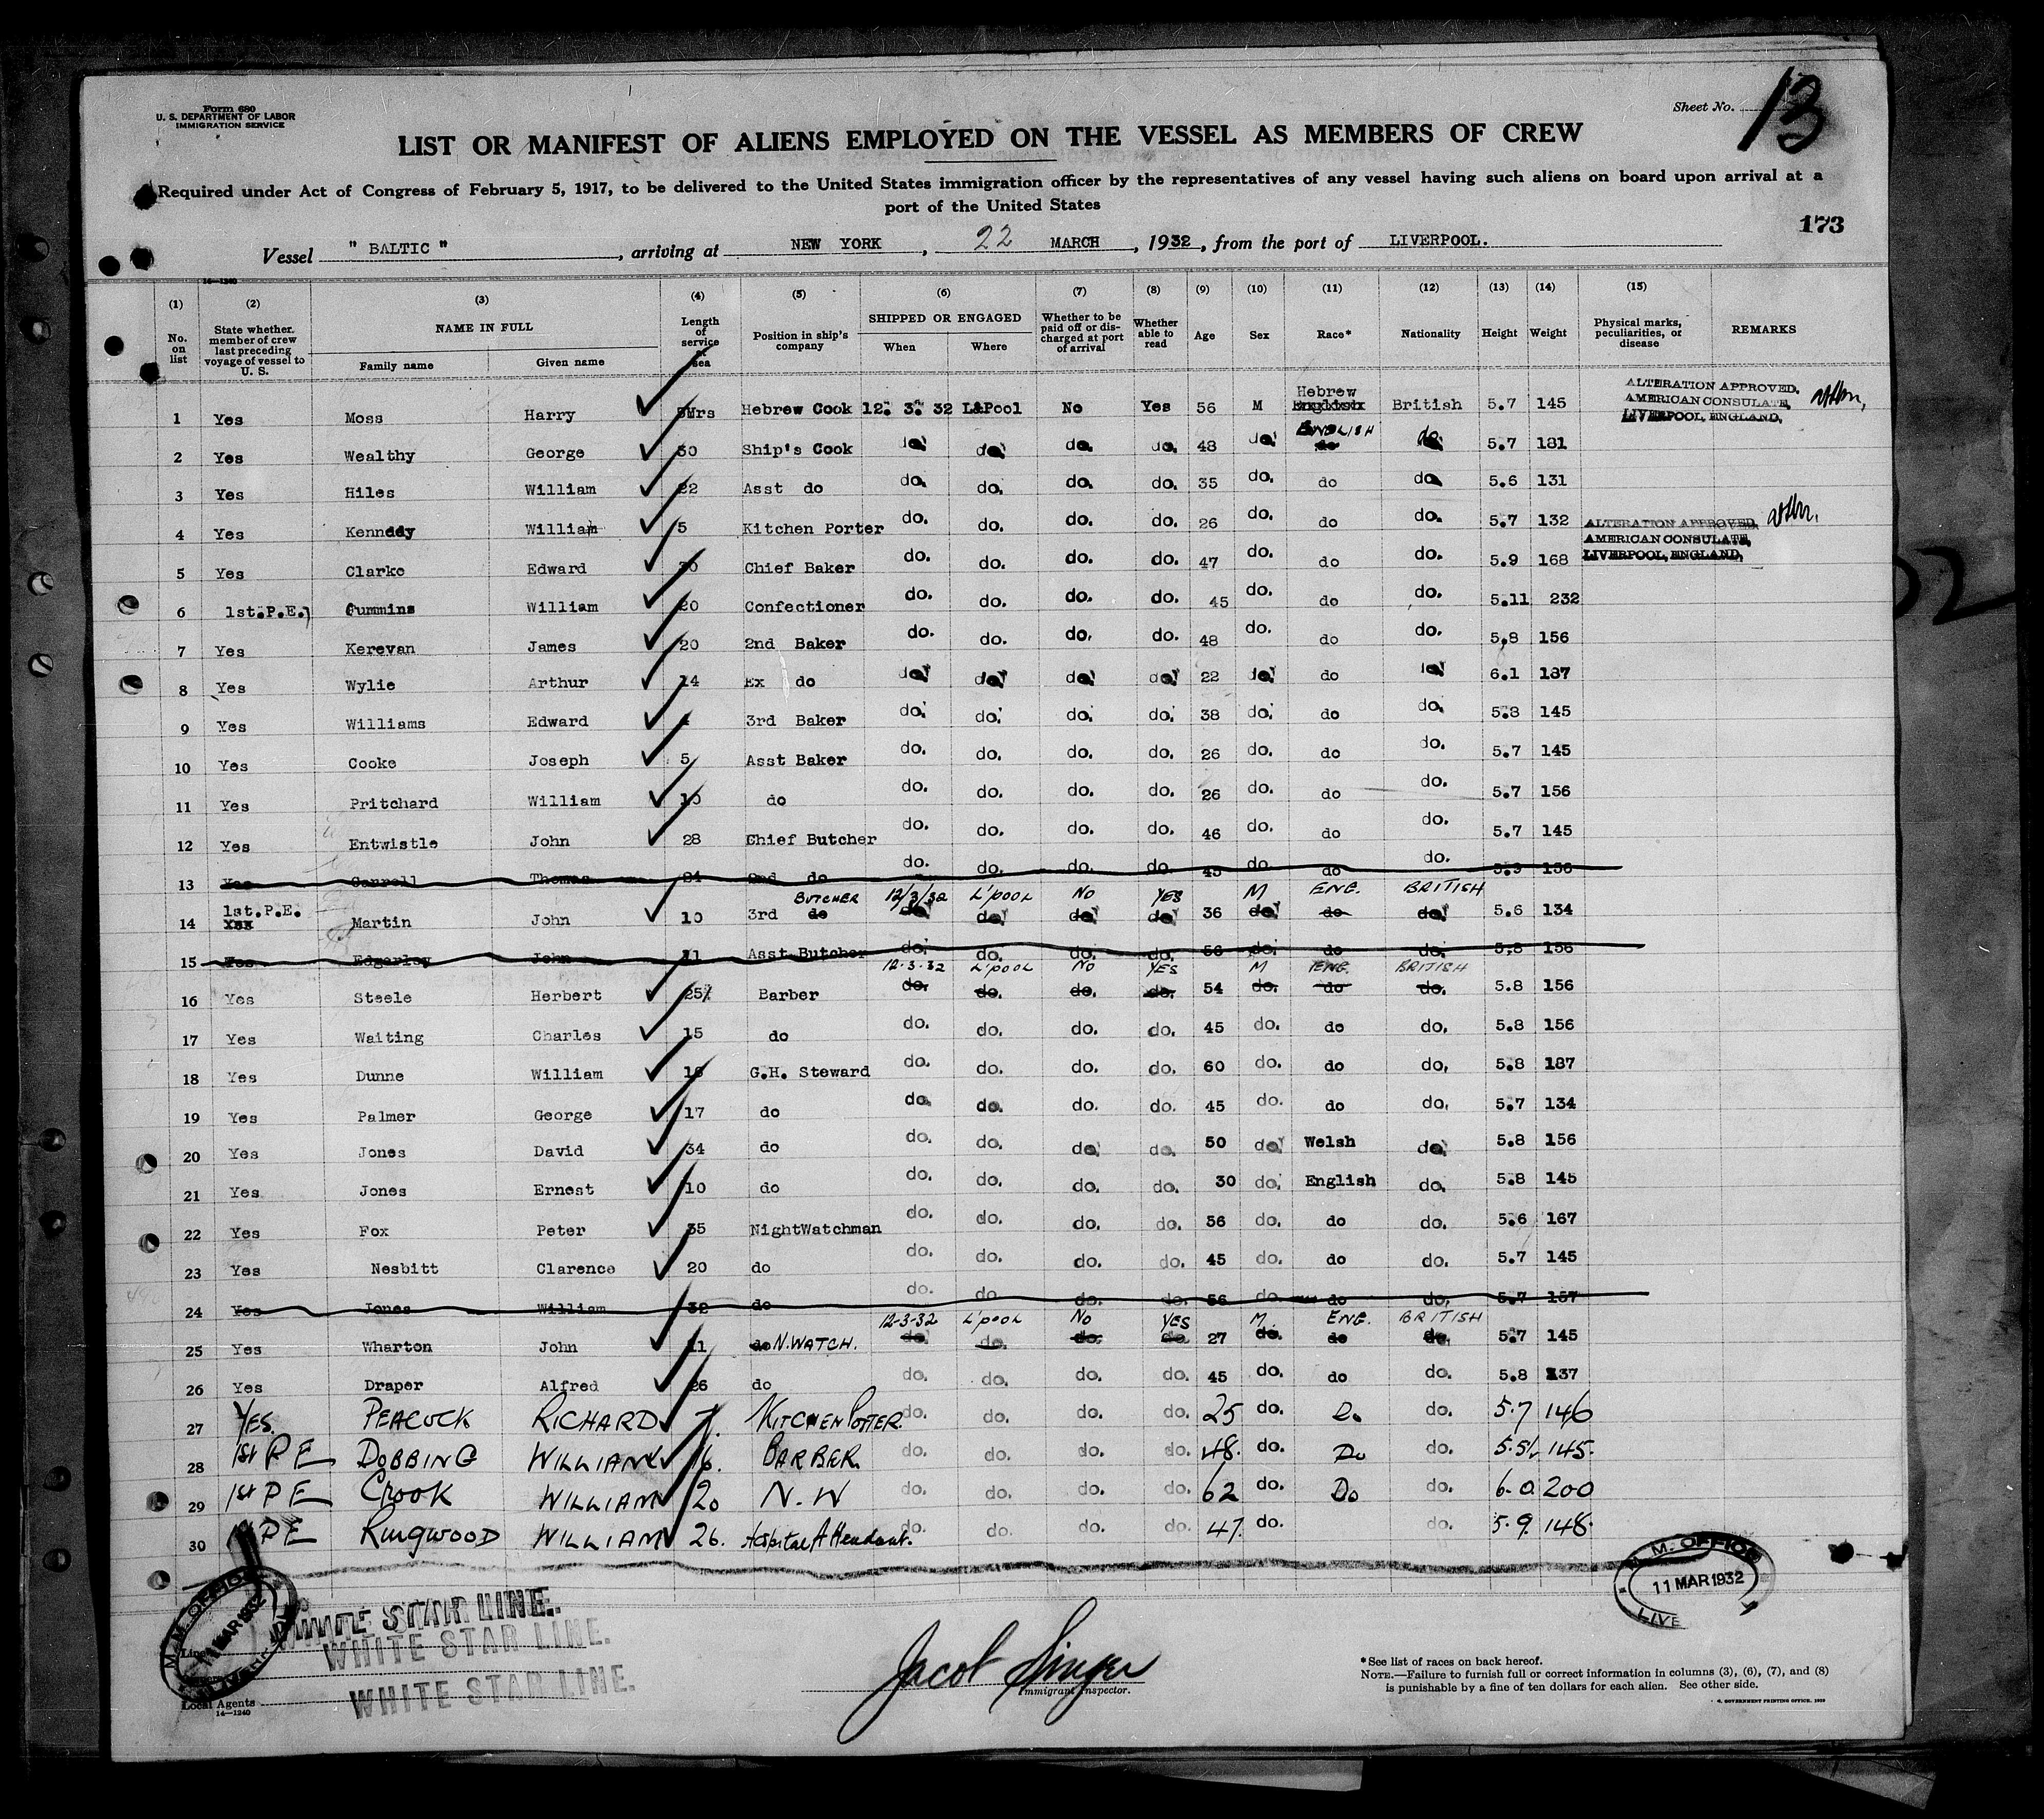 Form 680
U. S. DEPARTMENT OF LABOR
IMMIGRATION SERVICE
Sheet No. 13
LIST OR MANIFEST OF ALIENS EMPLOYED ON THE VESSEL AS MEMBERS OF CREW
Required under Act of Congress of February 5, 1917, to be delivered to the United States immigration officer by the representatives of any vessel having such aliens on board upon arrival at a
port of the United States
173
Vessel "BALTIC", arriving at NEW YORK, 22 MARCH, 1932, from the port of LIVERPOOL.
14—1240
(1) No. on list (2) State whether member of crew last preceding voyage of vessel to U. S. (3) NAME IN FULL Family name Given name (4) Length of service at sea (5) Position in ship's company (6) SHIPPED OR ENGAGED When Where (7) Whether to be paid off or discharged at port of arrival (8) Whether able to read (9) Age (10) Sex (11) Race* (12) Nationality (13) Height (14) Weight (15) Physical marks, peculiarities, or disease REMARKS
1 Yes Moss Harry Hebrew Cook 12. 3. 32 L&Pool No Yes 56 M Hebrew English British 5.7 145 ALTERATION APPROVED, AMERICAN CONSULATE, LIVERPOOL, ENGLAND,
2 Yes Wealthy George 30 Ship's Cook do. do. do. do. 48 do. ENGLISH do do. 5.7 181
3 Yes Hiles William 22 Asst do do. do. do. do. 35 do. do do. 5.6 131
4 Yes Kenneddy William 5 Kitchen Porter do. do. do. do. 26 do. do do. 5.7 132 ALTERATION APPROVED, AMERICAN CONSULATE, LIVERPOOL, ENGLAND,
5 Yes Clarke Edward 30 Chief Baker do. do. do. do. 47 do. do do. 5.9 168
6 1st.P.E. Cummins William 20 Confectioner do. do. do. do. 45 do. do do. 5.11 232
7 Yes Kerevan James 20 2nd Baker do. do. do. do. 48 do. do do. 5.8 156
8 Yes Wylie Arthur 14 Ex do do. do. do. do. 22 do. do do. 6.1 187
9 Yes Williams Edward 3rd Baker do. do. do. do. 38 do. do do. 5.8 145
10 Yes Cooke Joseph 5 Asst Baker do. do. do. do. 26 do. do do. 5.7 145
11 Yes Pritchard William 10 do do. do. do. do. 26 do. do do. 5.7 156
12 Yes Entwistle John 28 Chief Butcher do. do. do. do. 46 do. do do. 5.7 145
13 Yes Carroll Thomas 2nd do do. do. do. do. 45 do. do do. 5.9 156
14 1st.P.E. Yes Martin John 10 3rd do BUTCHER 12/3/32 L'POOL NO YES 36 M ENG. BRITISH 5.6 134
15 Yes Edgerley John Asst Butcher do. do. do. do. 56 do. do do. 5.8 156
16 Yes Steele Herbert 25 Barber 12-3-32 L'POOL NO YES 54 M ENG. BRITISH 5.8 156
17 Yes Waiting Charles 15 do do. do. do. do. 45 do. do do. 5.8 156
18 Yes Dunne William G.H. Steward do. do. do. do. 60 do. do do. 5.8 187
19 Yes Palmer George 17 do do. do. do. do. 45 do. do do. 5.7 134
20 Yes Jones David 34 do do. do. do. do. 50 do. Welsh do. 5.8 156
21 Yes Jones Ernest 10 do do. do. do. do. 30 do. English do. 5.8 145
22 Yes Fox Peter 35 NightWatchman do. do. do. do. 56 do. do do. 5.6 167
23 Yes Nesbitt Clarence 20 do do. do. do. do. 45 do. do do. 5.7 145
24 Yes Jones William 32 do do. do. do. do. 56 do. do do. 5.7 157
25 Yes Wharton John 11 do N.WATCH. 12-3-32 L'POOL NO YES 27 M. ENG. BRITISH 5.7 145
26 Yes Draper Alfred 26 do do. do. do. do. 45 do. do do. 5.8 137
27 YES. PEACOCK RICHARD KITCHEN PORTER. do. do. do. do. 25 do. Do do. 5.7 146
28 1st P E DOBBING WILLIAM 16. BARBER. do. do. do. do. 48. do. Do do. 5.5½ 145.
29 1st P E CROOK WILLIAM 20 N.W do. do. do. do. 62 do. Do do. 6-0 200
30 P E RINGWOOD WILLIAM 26. Hospital Attendant. do. do. do. do. 47. do. do. 5.9. 148.
M. M. OFFICE
11 MAR 1932
LIVE
M. M. OFFICE
MAR 1932
WHITE STAR LINE.
WHITE STAR LINE.
WHITE STAR LINE.
Line
Local Agents
14—1240
Jacob Singer
Immigrant Inspector.
*See list of races on back hereof.
NOTE.—Failure to furnish full or correct information in columns (3), (6), (7), and (8)
is punishable by a fine of ten dollars for each alien. See other side.
GOVERNMENT PRINTING OFFICE